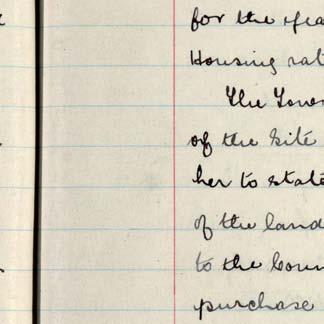 for the yea
Housing rat
The Town
of the Site
her to state
of the land
to the Coun
purchase